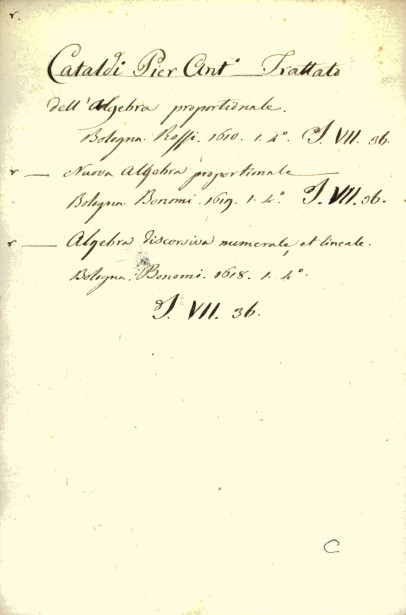 r.
Cataldi Pier Ant.º — Trattato
dell'Algebra proportionale.
Bologna Rossi. 1610. 1. 4.º J. VII. 36.
r — Nuova Algebra proportionale —
Bologna Bonomi. 1619. 1. 4.º J. VII. 36.
r — Algebra discorsiva numerale, et lineale.
Bologna. Bonomi. 1618. 1. 4.º
J. VII. 36.
C